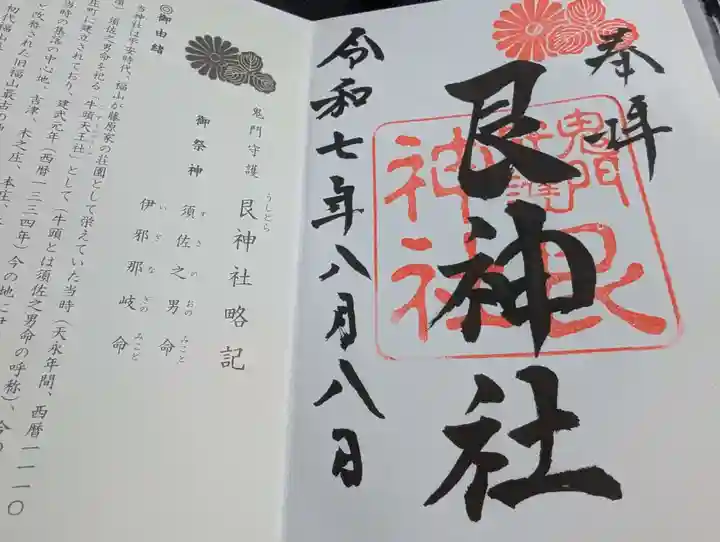 奉拝
艮神社
鬼門
守護
艮
神社
令和七年八月八日
鬼門守護
艮神社略記
うしとら
御祭神
須佐之男命
すさのおのみこと
伊邪那岐命
いざなぎのみこと
◎御由緒
当神社は平安時代、福山が藤原家の荘園として栄えていた当時(天永年間、西暦一一一〇
頃)須佐之男命を祀る「牛頭天王社」として(牛頭とは須佐之男命の呼称)、
庄町に建立されており、建武元年(西暦一三三四年)今の地に
当時の集落の中心地、吉津、木之庄、本庄、
と改称された旧福山最古の
初代福山